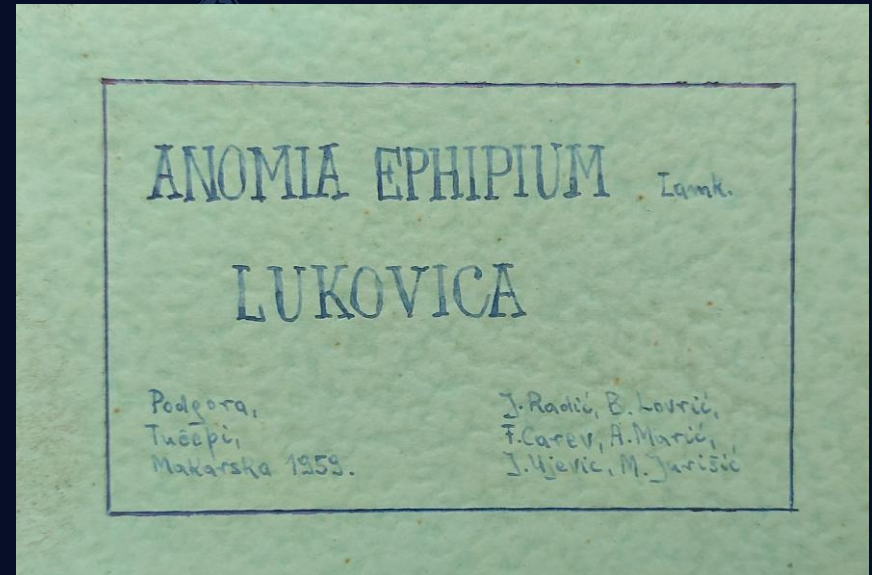 ANOMIA EPHIPIUM Lamk.
LUKOVICA
Podgora,
Tučepi,
Makarska 1959.
J. Radić, B. Lovrić,
F. Carev, A. Marić,
J. Ujević, M. Jurišić